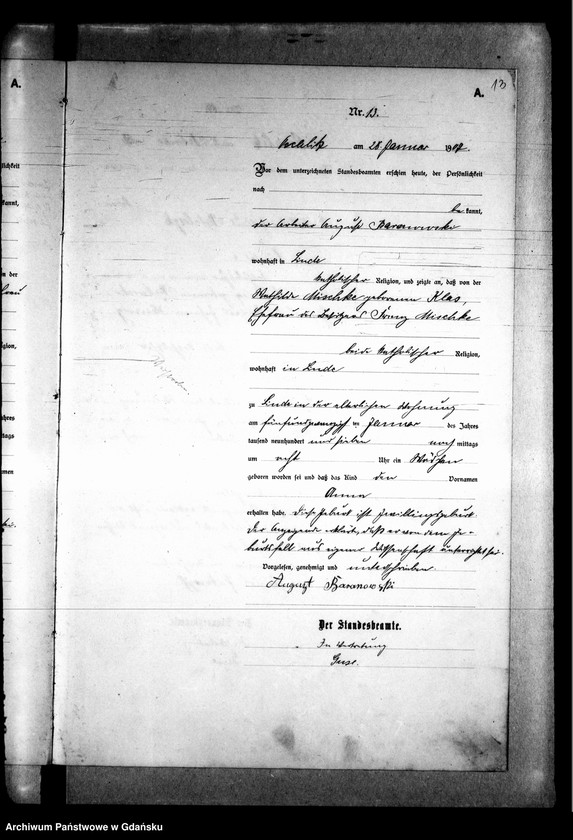 A.
13
A.
Nr. 13.
am 28. Januar 1907.
Vor dem unterzeichneten Standesbeamten erschien heute, der Persönlichkeit
nach
be kannt,
der Arbeiter August Baranowski
wohnhaft in Linde
katholischer Religion, und zeigte an, daß von der
Mathilde Mischke geborenen Klas,
Ehefrau des Besitzers Franz Mischke
beide katholischer Religion,
wohnhaft in Linde
zu Linde in der elterlichen Wohnung
am fünfundzwanzigsten Januar des Jahres
tausend neunhundert und sieben nachmittags
um acht Uhr ein Mädchen
geboren worden sei und daß das Kind den Vornamen
Anna
erhalten habe. Diese Geburt ist Zwillingsgeburt.
Der Anzeigende erklärte, daß er von dem Ge-
burtsfall aus eigener Wissenschaft unterrichtet sei.
Vorgelesen, genehmigt und unterschrieben
August Baranowski
Der Standesbeamte.
In Vertretung
Archiwum Państwowe w Gdańsku